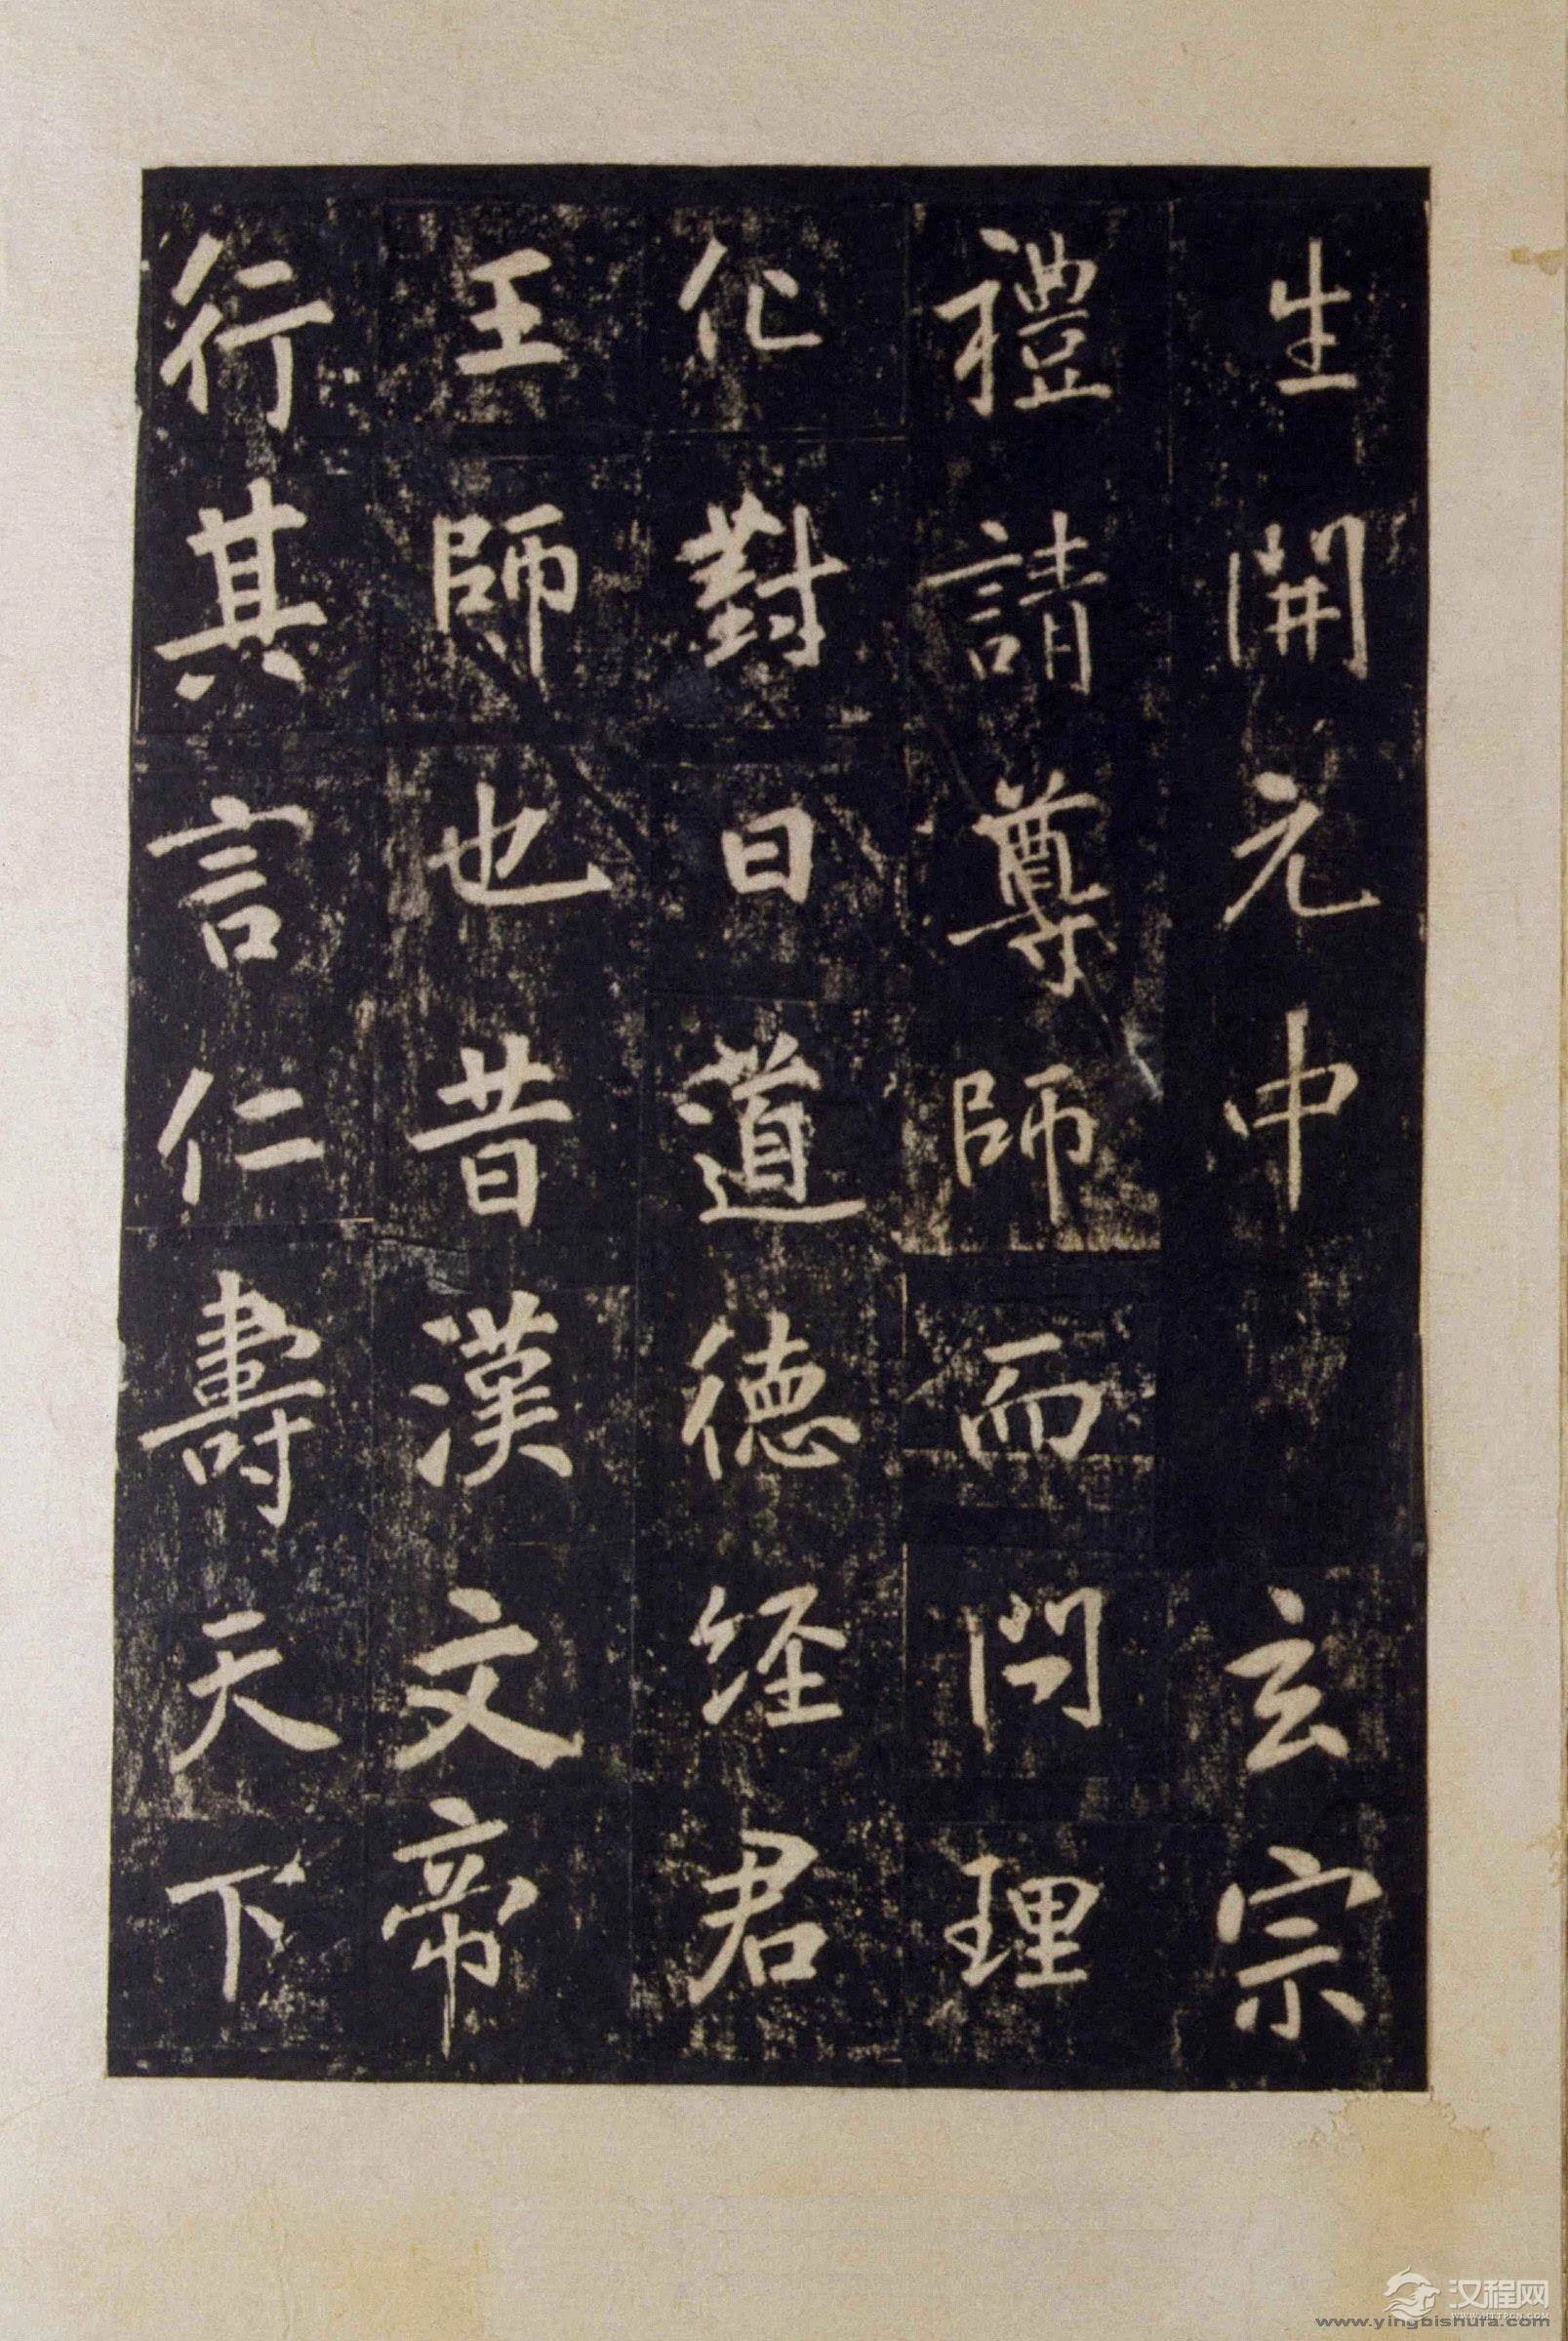 生開元中　玄宗
禮請尊師而問理
化對曰道德経君
王師也昔漢文帝
行其言仁壽天下
汉程网
WWW.HTTPCN.COM
www.yingbishufa.com